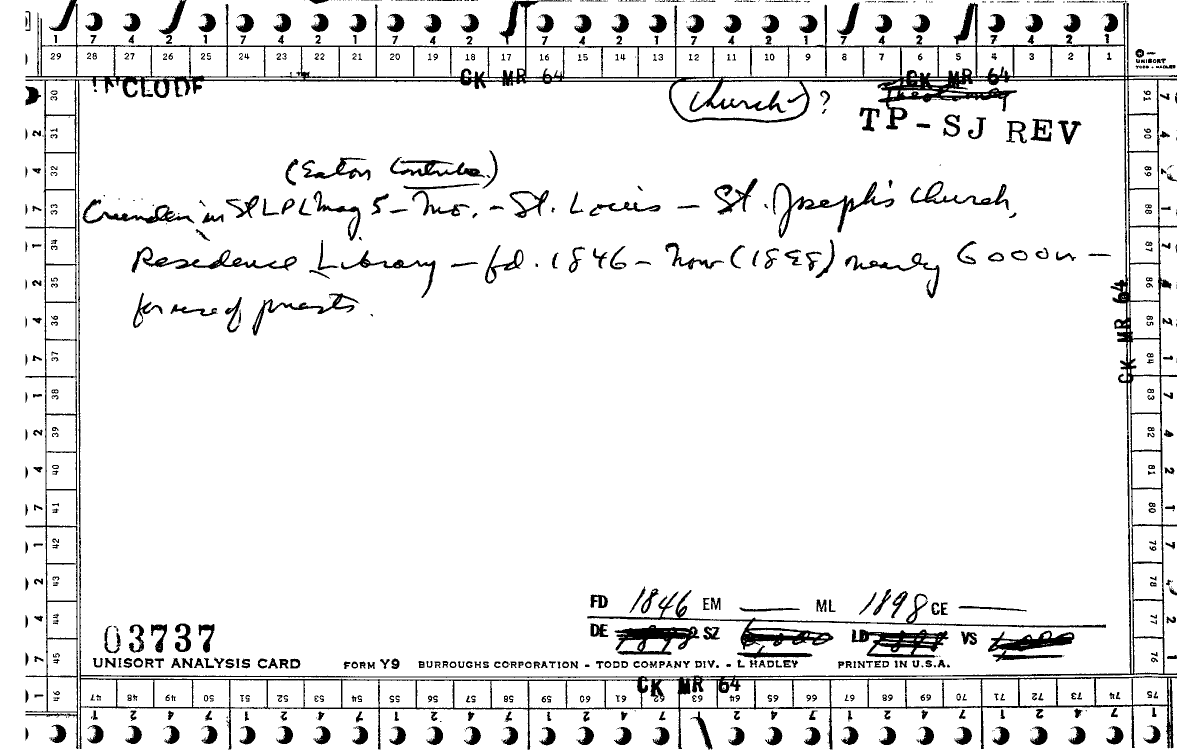 1 7 4 2 1 7 4 2 1 7 4 2 1 7 4 2 1 7 4 2 1 7 4 2 1 7 4 2 1
29 28 27 26 25 24 23 22 21 20 19 18 17 16 15 14 13 12 11 10 9 8 7 6 5 4 3 2 1
UNISORT
TODD - HADLEY
INCLUDE
CK MR 64
CK MR 64
Church ?
TP-SJ REV
(Eaton Contribu.)
in StLPL Mag 5 - Mo. - St. Louis - St. Joseph's Church,
Residence Library - fd. 1846 - Now (1898) nearly 6000v -
for use of priests.
CK MR 64
30 31 32 33 34 35 36 37 38 39 40 41 42 43 44 45 46
91 90 89 88 87 86 85 84 83 82 81 80 79 78 77 76 75
FD 1846 EM ML 1898 CE
DE 1898 SZ 6,000 LD 1898 VS 6,000
03737
UNISORT ANALYSIS CARD FORM Y9 BURROUGHS CORPORATION - TODD COMPANY DIV. - L HADLEY PRINTED IN U.S.A.
CK MR 64
47 48 49 50 51 52 53 54 55 56 57 58 59 60 61 62 63 64 65 66 67 68 69 70 71 72 73 74 75
1 2 4 7 1 2 4 7 1 2 4 7 1 2 4 7 1 2 4 7 1 2 4 7 1 2 4 7 1